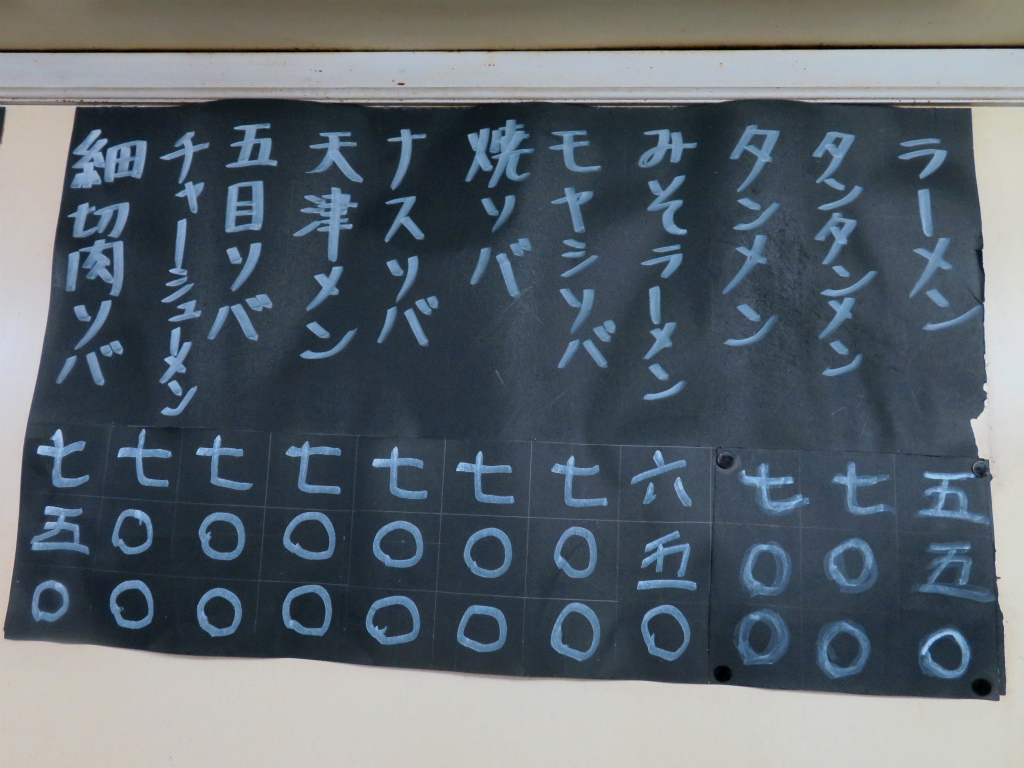 ラーメン 五五〇
タンタンメン 七〇〇
タンメン 七〇〇
みそラーメン 六五〇
モヤシソバ 七〇〇
焼ソバ 七〇〇
ナスソバ 七〇〇
天津メン 七〇〇
五目ソバ 七〇〇
チャーシューメン 七〇〇
細切肉ソバ 七五〇